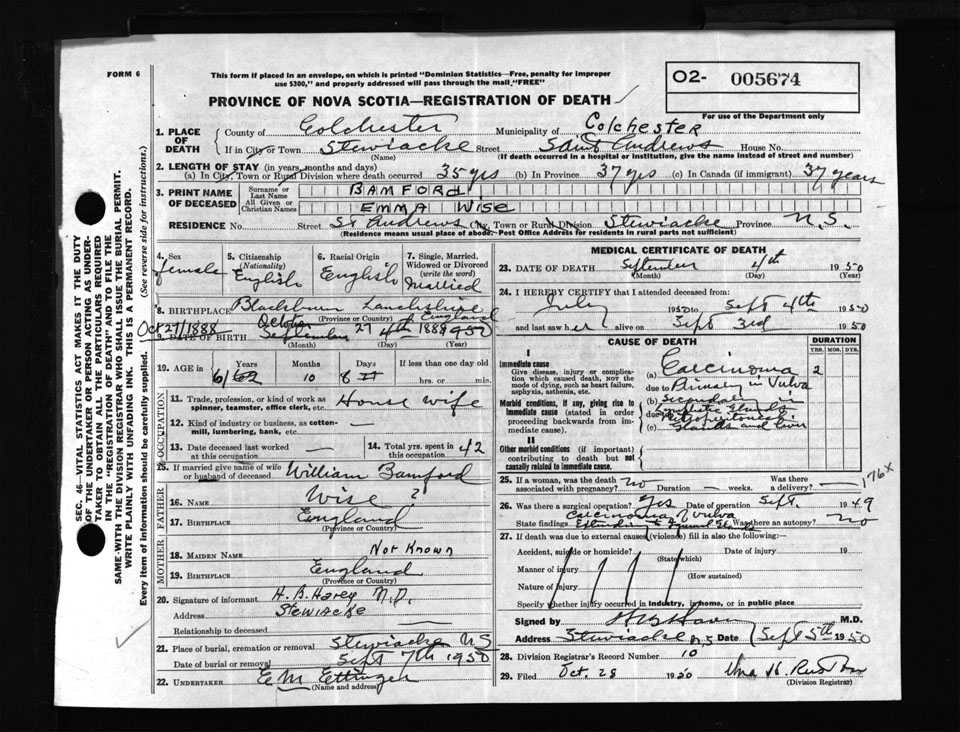 FORM 6
This form if placed in an envelope, on which is printed "Dominion Statistics—Free, penalty for improper
use $300," and properly addressed will pass through the mail "FREE"
O2- 005674
For use of the Department only
PROVINCE OF NOVA SCOTIA—REGISTRATION OF DEATH
1. PLACE OF DEATH County of Colchester Municipality of Colchester
If in City or Town Stewiacke Street Saint Andrews House No.
(Name) (If death occurred in a hospital or institution, give the name instead of street and number)
2. LENGTH OF STAY (in years, months and days)
(a) In City, Town or Rural Division where death occurred 35 yrs (b) In Province 37 yrs (c) In Canada (if immigrant) 37 years
3. PRINT NAME OF DECEASED Surname or Last Name BAMFORD
All Given or Christian Names EMMA Wise
RESIDENCE No. Street St Andrews City, Town or Rural Division Stewiacke Province N.S.
(Residence means usual place of abode. Post Office Address for residents in rural parts not sufficient)
4. Sex female
5. Citizenship (Nationality) English
6. Racial Origin English
7. Single, Married, Widowed or Divorced (write the word) Married
8. BIRTHPLACE Blackburn Lancashire England
(Province or Country)
Oct 27/1888
October 27
9. DATE OF BIRTH September 4th 1888
(Month) (Day) (Year)
10. AGE in Years Months Days If less than one day old
61 10 8 hrs. or min.
OCCUPATION
11. Trade, profession, or kind of work as House wife
spinner, teamster, office clerk, etc.
12. Kind of industry or business, as cotten-mill, lumbering, bank, etc. —
13. Date deceased last worked at this occupation —
14. Total yrs. spent in this occupation 42
15. If married give name of wife or husband of deceased William Bamford
FATHER
16. NAME Wise ?
17. BIRTHPLACE England
(Province or Country)
MOTHER
18. MAIDEN NAME Not Known
19. BIRTHPLACE England
(Province or Country)
20. Signature of informant H. B. Havey M.D.
Address Stewiacke
Relationship to deceased —
21. Place of burial, cremation or removal Stewiacke NS
Date of burial or removal Sept 7th 1950
22. UNDERTAKER E M Ettinger
(Name and address)
MEDICAL CERTIFICATE OF DEATH
23. DATE OF DEATH September 4th 1950
(Month) (Day) (Year)
24. I HEREBY CERTIFY that I attended deceased from:
July 1950 to Sept 4th 1950
and last saw her alive on Sept 3rd 1950
CAUSE OF DEATH
DURATION
YRS. MOS. DYS.
I
Immediate cause
Give disease, injury or complication which caused death, not the mode of dying, such as heart failure, asphyxia, asthenia, etc.
(a) Carcinoma 2
due to Primary in Vulva
Morbid conditions, if any, giving rise to immediate cause (stated in order proceeding backwards from immediate cause).
(b) Secondary in
due to
(c) Glands and liver
II
Other morbid conditions (if important) contributing to death but not causally related to immediate cause.
25. If a woman, was the death associated with pregnancy? no Duration — weeks. Was there a delivery? —
176x
26. Was there a surgical operation? Yes Date of operation Sept. 1949
State findings Carcinoma Vulva Was there an autopsy? No
27. If death was due to external causes (violence) fill in also the following:
Accident, suicide or homicide? Date of injury 19
(State which)
Manner of injury
(How sustained)
Nature of injury
Specify whether injury occurred in industry, in home, or in public place
Signed by H B Havey M.D.
Address Stewiacke N S Date Sept 5th 1950
28. Division Registrar's Record Number 10
29. Filed Oct. 28 1950
(Division Registrar)
SEC. 46—VITAL STATISTICS ACT MAKES IT THE DUTY
OF THE UNDERTAKER OR PERSON ACTING AS UNDER-
TAKER TO OBTAIN ALL THE PARTICULARS REQUIRED
IN THE "REGISTRATION OF DEATH" AND TO FILE THE
SAME WITH THE DIVISION REGISTRAR WHO SHALL ISSUE THE BURIAL PERMIT.
WRITE PLAINLY WITH UNFADING INK. THIS IS A PERMANENT RECORD.
Every item of information should be carefully supplied. (See reverse side for instructions.)